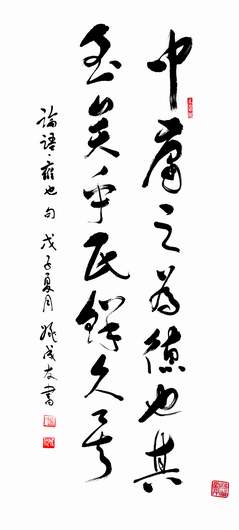 中庸之為德也其
至矣乎民鮮久矣
論語·雍也句 戊子夏月 姚成友書